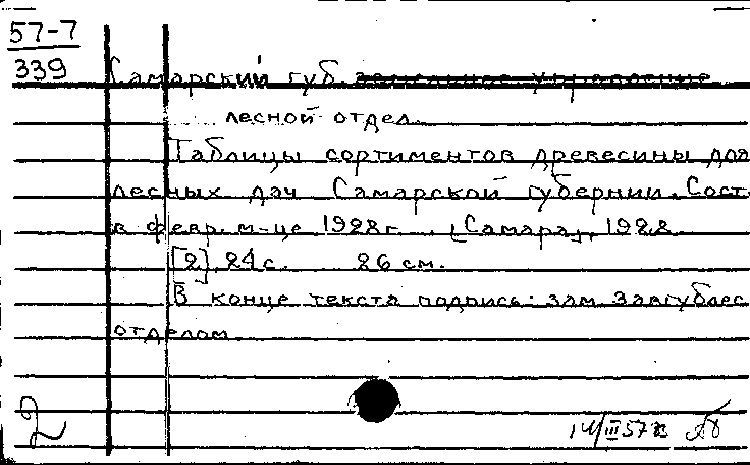 57-7
339
Самарский губ. земельное управление
лесной отдел.
Таблицы сортиментов древесины для
лесных дач Самарской губернии. Сост.
в февр. м-це 1928г. [Самара], 1928.
[2], 24с. 26 см.
В конце текста подпись: зам. Завгублес
отделом.
2
14/III 57г